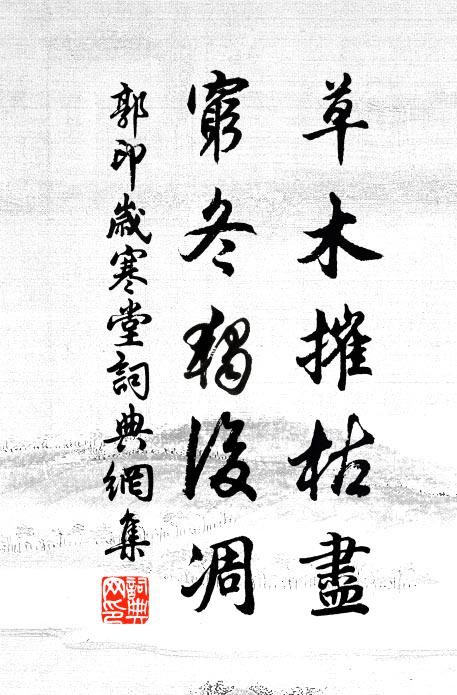 草木摧枯盡
窮冬獨後凋
郭印歲寒堂詞典網集
詞典网印